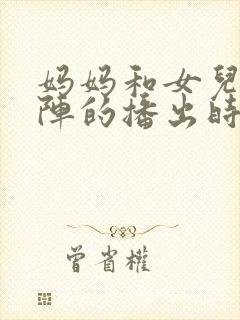 妈妈和女兒
陣的播出時
曾省權